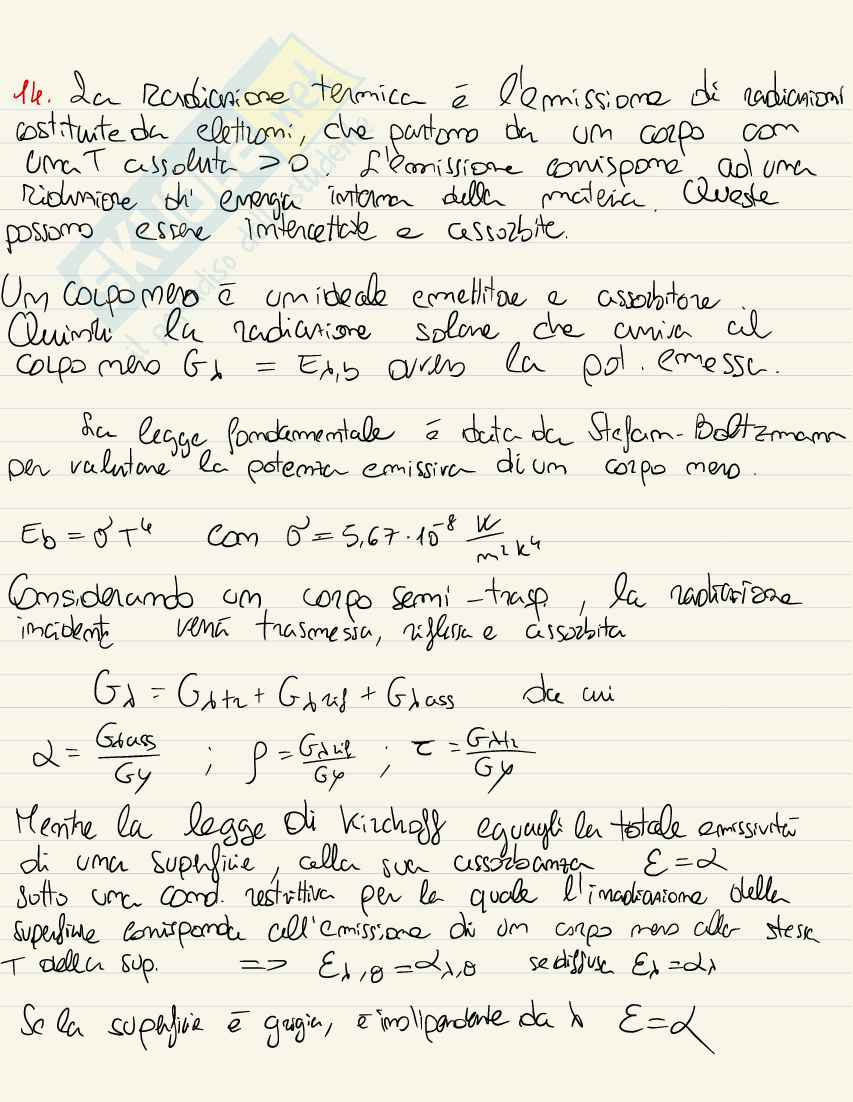 14. La Radiazione termica è l'emissione di radiazioni
costituite da elettroni, che partono da un corpo con
una T assoluta > 0. L'emissione corrisponde ad una
Riduzione di energia interna della materia. Queste
possono essere intercettate e assorbite.
Un corpo nero è un ideale emettitore e assorbitore.
Quindi la radiazione solare che arriva al
corpo nero Gλ = Eλ,b ovvero la pot. emessa.
La legge fondamentale è data da Stefan-Boltzmann
per valutare la potenza emissiva di un corpo nero.
Eb = σT⁴ con σ = 5,67·10⁻⁸ W/m²K⁴
Considerando un corpo semi-trasp, la radiazione
incidente verrà trasmessa, riflessa e assorbita
Gλ = Gλtr + Gλrif + Gλass da cui
α = Gλass/Gλ ; ρ = Gλrif/Gλ ; τ = Gλtr/Gλ
Mentre la legge di Kirchoff eguagli la totale emissività
di una superficie, alla sua assorbanza ε = α
sotto una cond. restrittiva per la quale l'irradiazione della
superficie corrisponda all'emissione di un corpo nero alla stessa
T della sup. => ελ,θ = αλ,θ se diffusa ελ = αλ
Se la superficie è grigia, è indipendente da λ ε = α
skuola.net
il paradiso dello studente